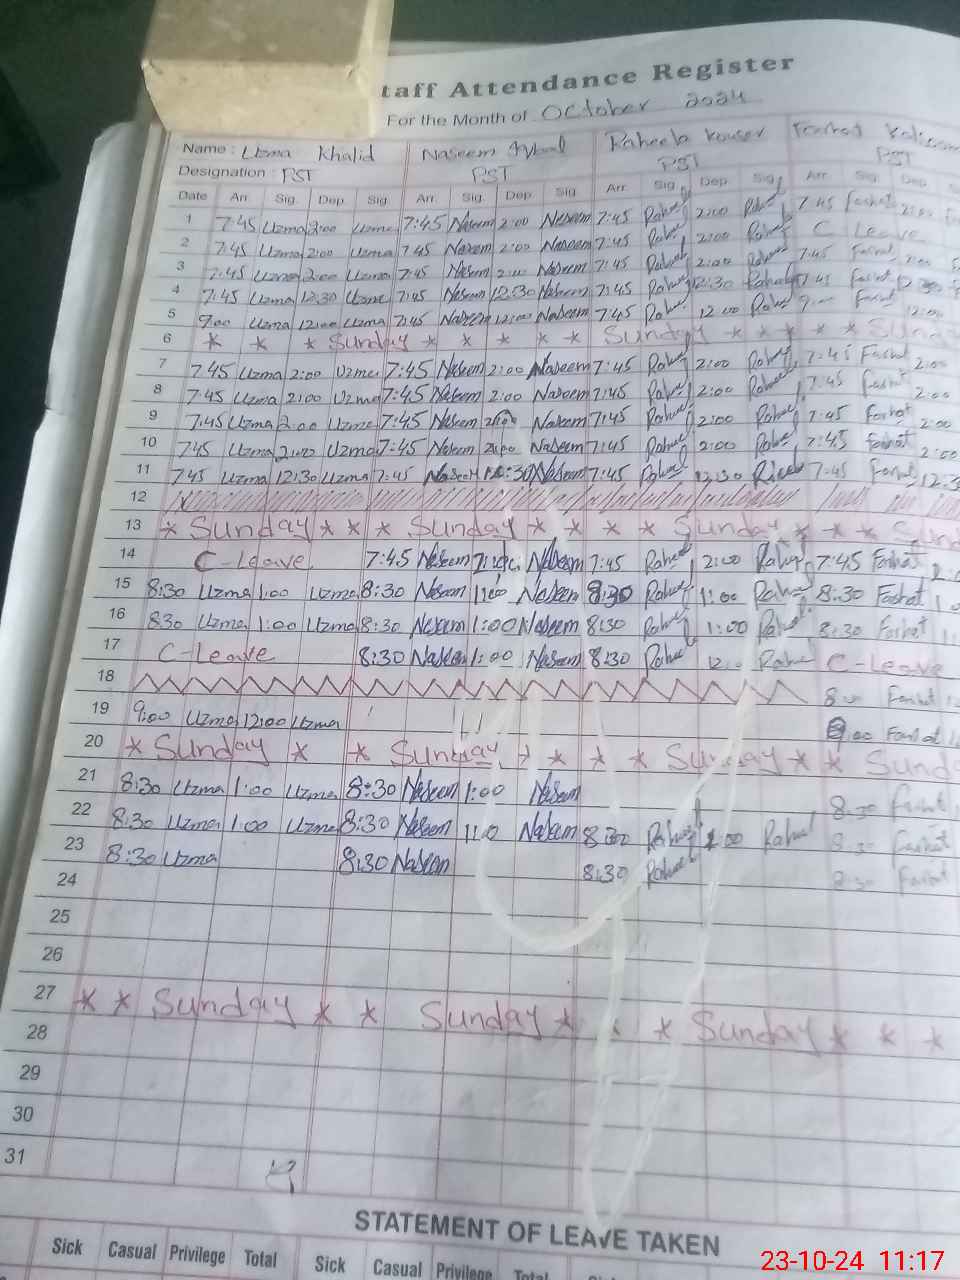 taff Attendance Register
For the Month of October 2024
Name : Uzma Khalid Naseem Iqbal Raheela Kouser Farhat
Designation : PST PST PST PST
Date Arr. Sig. Dep. Sig. Arr. Sig. Dep. Sig. Arr. Sig. Dep. Sig. Arr. Sig. Dep.
1 7:45 Uzma 2:00 Uzma 7:45 Naseem 2:00 Naseem 7:45 Raheel 2:00 Raheel 7:45 Farhat 2:00
2 7:45 Uzma 2:00 Uzma 7:45 Naseem 2:00 Naseem 7:45 Raheel 2:00 Raheel C Leave
3 7:45 Uzma 2:00 Uzma 7:45 Naseem 2:00 Naseem 7:45 Raheel 2:00 Raheel 7:45 Farhat 2:00
4 7:45 Uzma 12:30 Uzma 7:45 Naseem 12:30 Naseem 7:45 Raheel 12:30 Raheel 7:45 Farhat
5 9:00 Uzma 12:00 Uzma 7:45 Naseem 12:00 Naseem 7:45 Raheel 12:00 Raheel 9:00 Farhat 12:00
6 * * * Sunday * * * * * Sunday * * * * * Sunda
7 7:45 Uzma 2:00 Uzma 7:45 Naseem 2:00 Naseem 7:45 Raheel 2:00 Raheel 7:45 Farhat 2:00
8 7:45 Uzma 2:00 Uzma 7:45 Naseem 2:00 Naseem 7:45 Raheel 2:00 Raheel 7:45 Farhat 2:00
9 7:45 Uzma 2:00 Uzma 7:45 Naseem 2:00 Naseem 7:45 Raheel 2:00 Raheel 7:45 Farhat 2:00
10 7:45 Uzma 2:00 Uzma 7:45 Naseem 2:00 Naseem 7:45 Raheel 2:00 Raheel 7:45 Farhat 2:00
11 7:45 Uzma 12:30 Uzma 7:45 Naseem 12:30 Naseem 7:45 Raheel 12:30 Raheel 7:45 Farhat 12:3
12
13 * Sunday * * * Sunday * * * * Sunday * * * * Sund
14 C-Leave 7:45 Naseem Naseem 7:45 Raheel 2:00 Raheel 7:45 Farhat 2:0
15 8:30 Uzma 1:00 Uzma 8:30 Naseem 1:00 Naseem 8:30 Raheel 1:00 Raheel 8:30 Farhat
16 8:30 Uzma 1:00 Uzma 8:30 Naseem 1:00 Naseem 8:30 Raheel 1:00 Raheel 8:30 Farhat
17 C-Leave 8:30 Naseem 1:00 Naseem 8:30 Raheel Raheel C-Leave
18 Farhat
19 9:00 Uzma 12:00 Uzma 9:00 Farhat
20 * Sunday * * Sunday * * * * Sunday * * Sund
21 8:30 Uzma 1:00 Uzma 8:30 Naseem 1:00 Naseem 8:30 Farhat
22 8:30 Uzma 1:00 Uzma 8:30 Naseem 1:0 Naseem 8:30 Raheel 1:00 Raheel 8:30 Farhat
23 8:30 Uzma 8:30 Naseem 8:30 Raheel 8:30 Farhat
24
25
26
27 * * Sunday * * Sunday * * * Sunday * * *
28
29
30
31
STATEMENT OF LEAVE TAKEN
Sick Casual Privilege Total Sick Casual Privilege Total
23-10-24 11:17